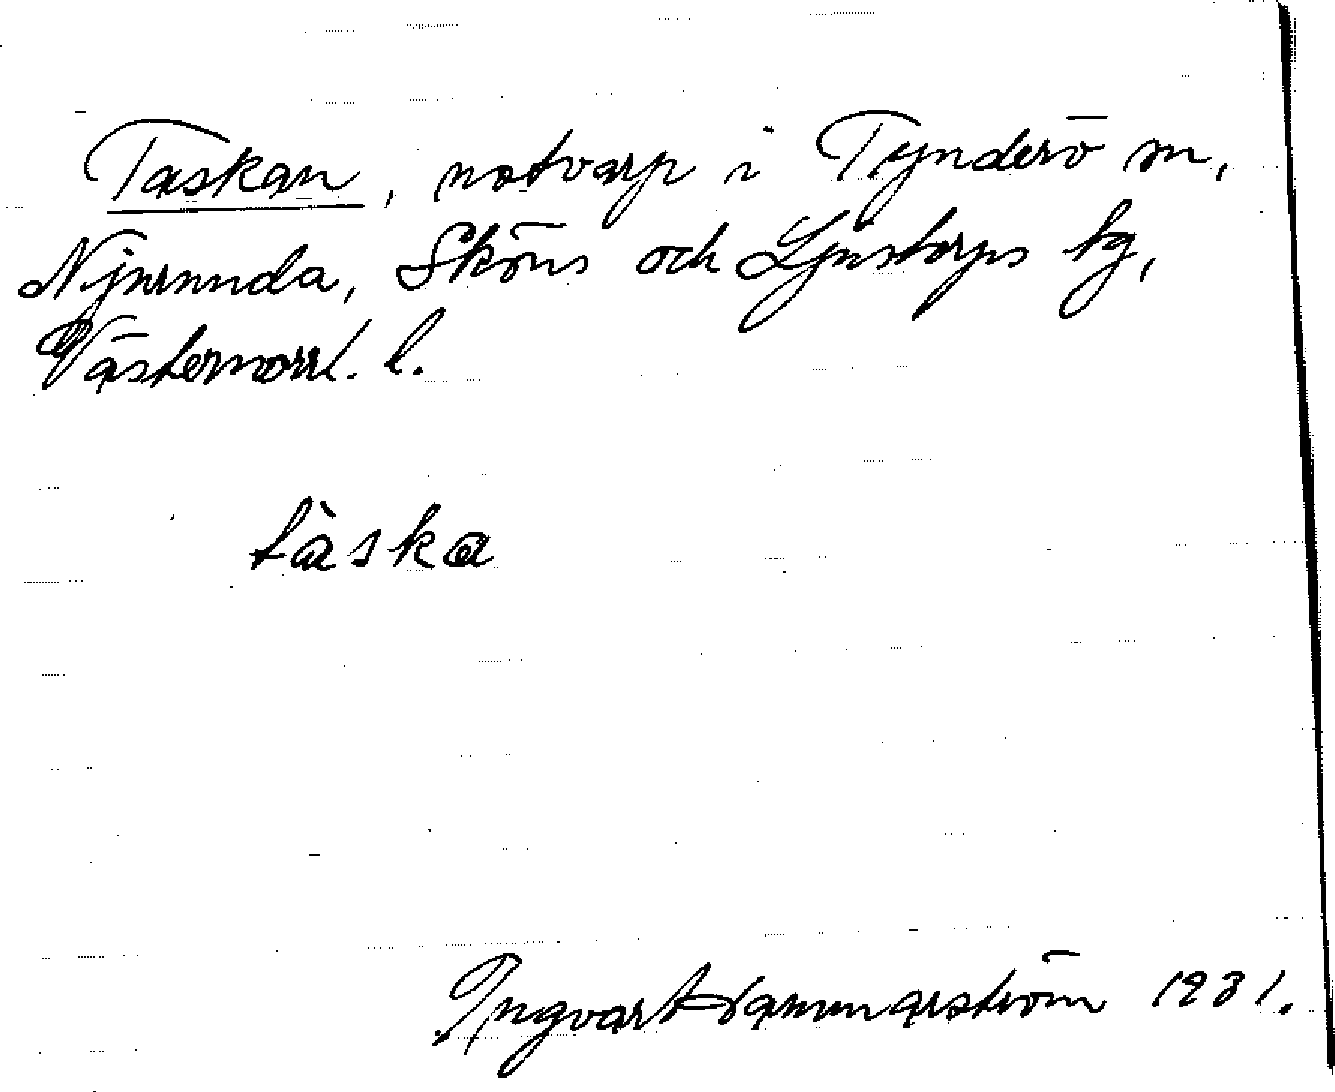 Taskan, notvarp i Tynderö sn,
Njurunda, Sköns och Ljustorps tg,
Västernorrl. l.
tàska
Ingvar Hammarström 1931.